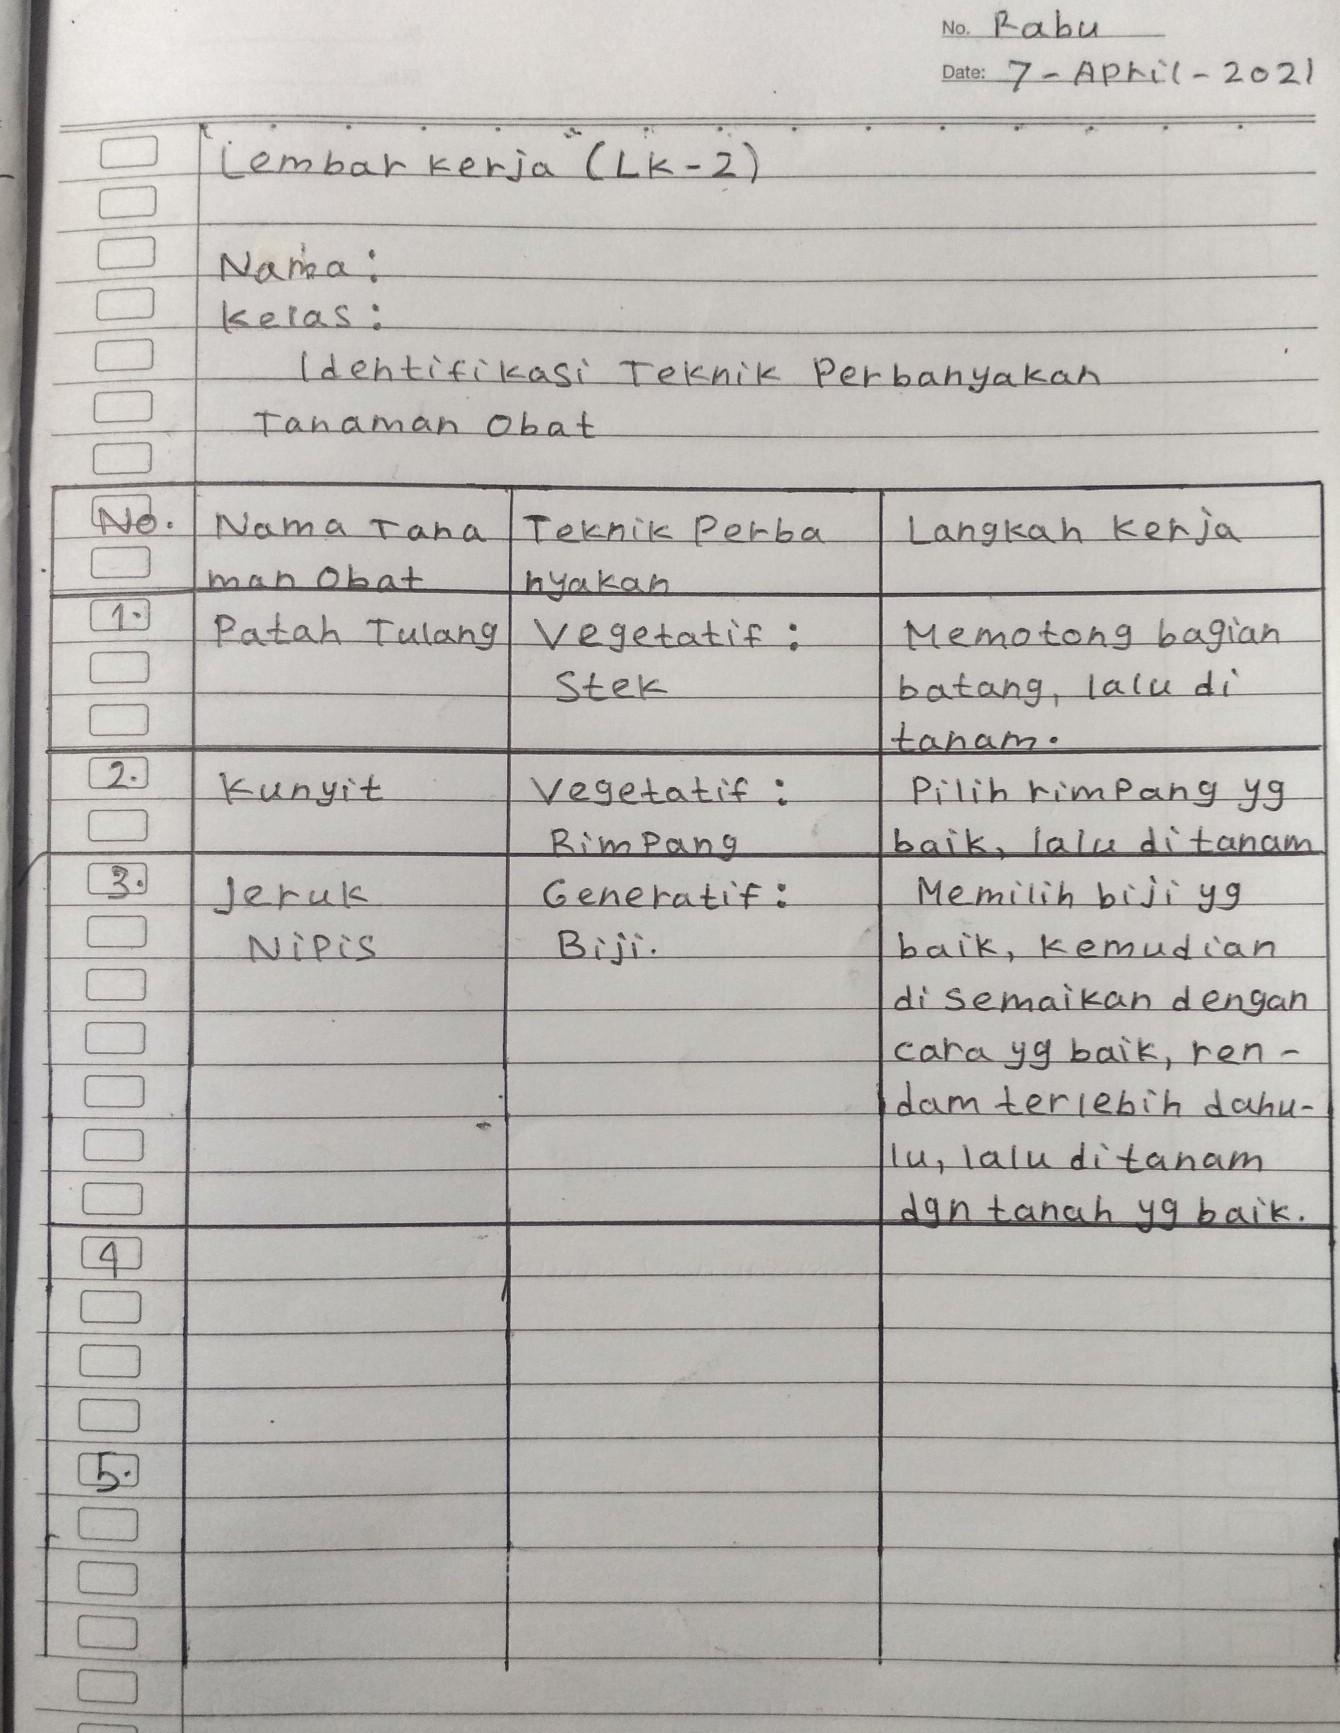 No. Rabu
Date: 7 - April - 2021
Lembar kerja (LK-2)
Nama :
Kelas :
Identifikasi Teknik Perbanyakan
Tanaman Obat
No. Nama Tana Teknik Perba Langkah Kerja
man Obat nyakan
1. Patah Tulang Vegetatif : Memotong bagian
Stek batang, lalu di
tanam.
2. Kunyit Vegetatif : Pilih rimpang yg
Rimpang baik, lalu di tanam
3. Jeruk Generatif : Memilih biji yg
Nipis Biji. baik, kemudian
di semaikan dengan
cara yg baik, ren-
dam terlebih dahu-
lu, lalu di tanam
dgn tanah yg baik.
4
5.